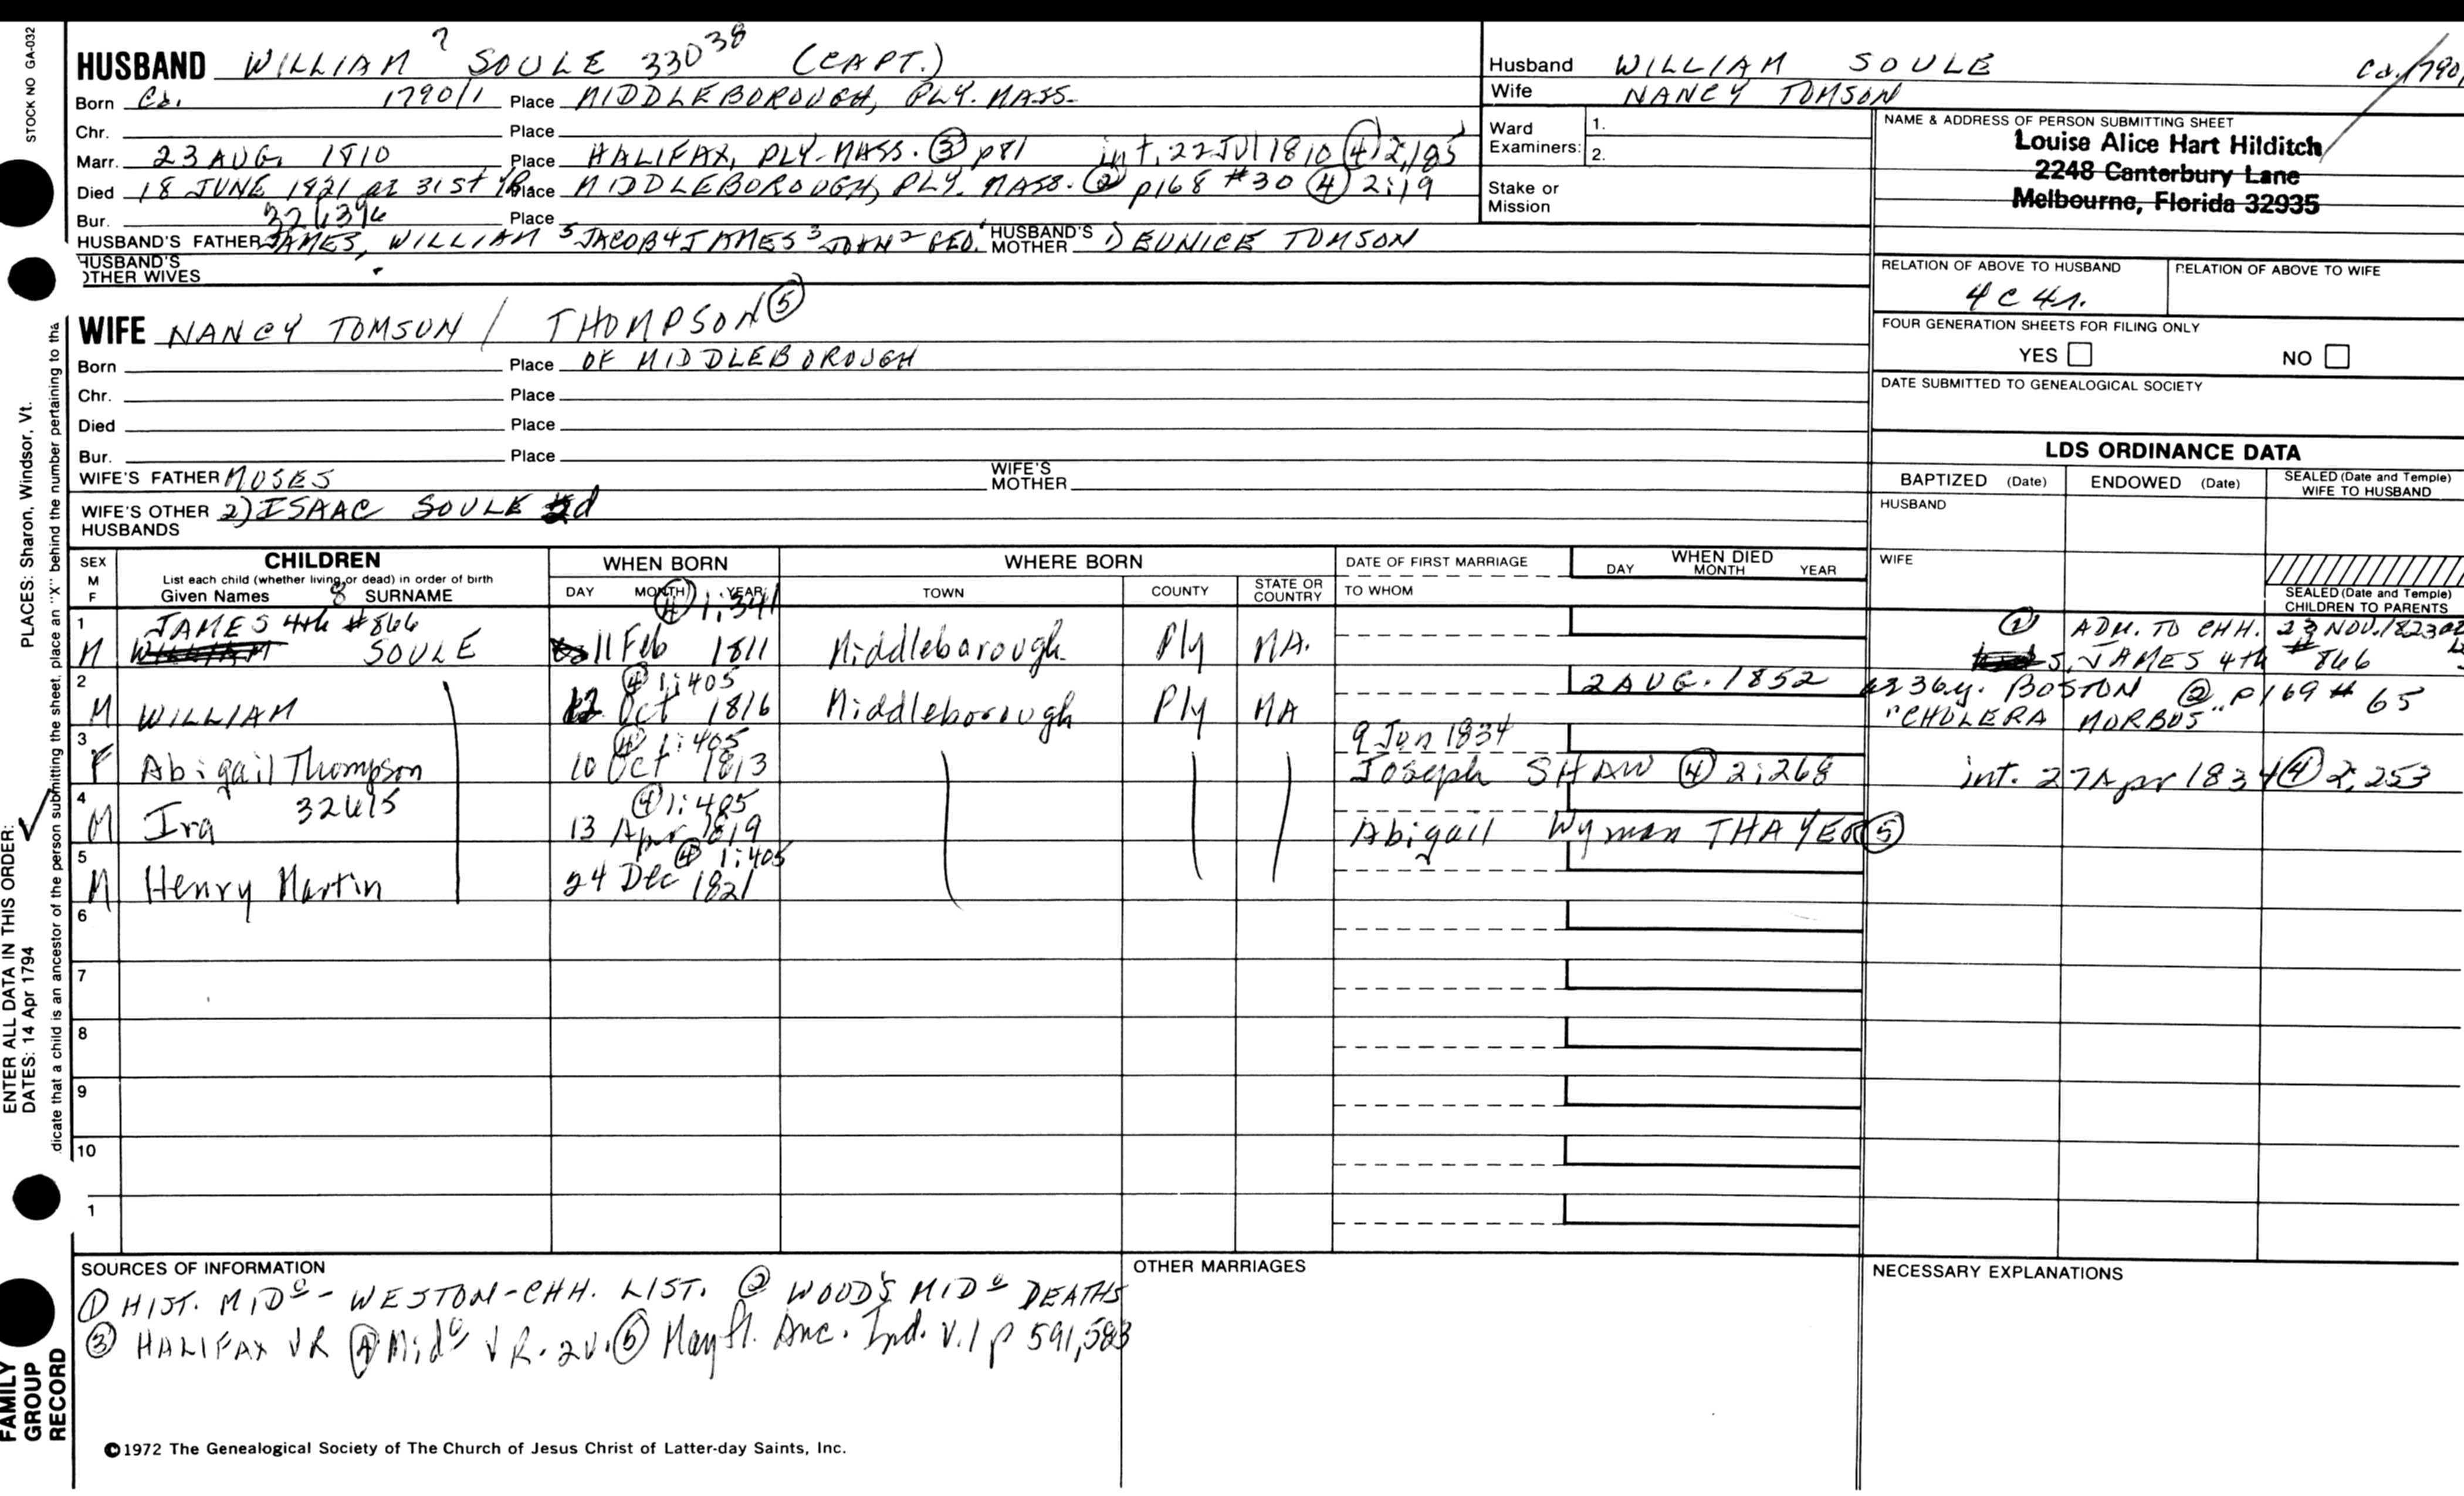 STOCK NO GA-032
HUSBAND WILLIAM 7 SOULE 330 38 (CAPT.)
Born Ca. 1790/1 Place MIDDLEBOROUGH, PLY. MASS.
Chr. Place
Marr. 23 AUG. 1810 Place HALIFAX, PLY-MASS. ③ p81 int. 22 JUL 1810 ④ 2,185
Died 18 JUNE 1821 ae 31st YR Place MIDDLEBOROUGH, PLY. MASS. ② p168 #30 ④ 2:19
Bur. Place
HUSBAND'S FATHER JAMES, WILLIAM 5 JACOB 4 JAMES 3 JOHN 2 GEO. 1 HUSBAND'S MOTHER ) EUNICE TOMSON
HUSBAND'S OTHER WIVES
Husband WILLIAM SOULE Ca. 1790/
Wife NANCY TOMSON
Ward Examiners: 1.
2.
Stake or Mission
NAME & ADDRESS OF PERSON SUBMITTING SHEET
Louise Alice Hart Hilditch
2248 Canterbury Lane
Melbourne, Florida 32935
RELATION OF ABOVE TO HUSBAND RELATION OF ABOVE TO WIFE
4 C 4 r.
FOUR GENERATION SHEETS FOR FILING ONLY
YES NO
DATE SUBMITTED TO GENEALOGICAL SOCIETY
WIFE NANCY TOMSON / THOMPSON ⑤
Born Place OF MIDDLEBOROUGH
Chr. Place
Died Place
Bur. Place
WIFE'S FATHER MOSES WIFE'S MOTHER
WIFE'S OTHER HUSBANDS 2) ISAAC SOULE 2d
LDS ORDINANCE DATA
BAPTIZED (Date) ENDOWED (Date) SEALED (Date and Temple) WIFE TO HUSBAND
HUSBAND
WIFE
SEALED (Date and Temple) CHILDREN TO PARENTS
SEX M F CHILDREN List each child (whether living or dead) in order of birth Given Names 8 SURNAME
WHEN BORN DAY MONTH YEAR
WHERE BORN TOWN COUNTY STATE OR COUNTRY
DATE OF FIRST MARRIAGE TO WHOM
WHEN DIED DAY MONTH YEAR
1 M JAMES 4th #866 WILLIAM SOULE ④ 1:341 11 Feb 1811 Middleborough Ply MA. ① ADM. TO CHH. 23 NOV. 1823
S. JAMES 4th # 866
2 M WILLIAM ④ 1:405 12 Oct 1816 Middleborough Ply MA 2 AUG. 1852 ae 36y. BOSTON ② p169 # 65
"CHOLERA MORBUS"
3 F Abigail Thompson ④ 1:405 10 Oct 1813 9 Jun 1834 Joseph SHAW ④ 2:268 int. 27 Apr 1834 ④ 2,253
4 M Ira 32615 ④ 1:405 13 Apr 1819 Abigail Wyman THAYER ⑤
5 M Henry Martin ④ 1:405 24 Dec 1821
6
7
8
9
10
1
SOURCES OF INFORMATION
① HIST. MIDo - WESTON-CHH. LIST. ② WOOD'S MIDo DEATHS
③ HALIFAX VR ④ Mido VR. 2v. ⑤ Mayfl. Anc. Ind. v.1 p 591,583
OTHER MARRIAGES
NECESSARY EXPLANATIONS
©1972 The Genealogical Society of The Church of Jesus Christ of Latter-day Saints, Inc.
FAMILY GROUP RECORD
ENTER ALL DATA IN THIS ORDER:
DATES: 14 Apr 1794
PLACES: Sharon, Windsor, Vt.
dicate that a child is an ancestor of the person submitting the sheet, place an "X" behind the number pertaining to tha